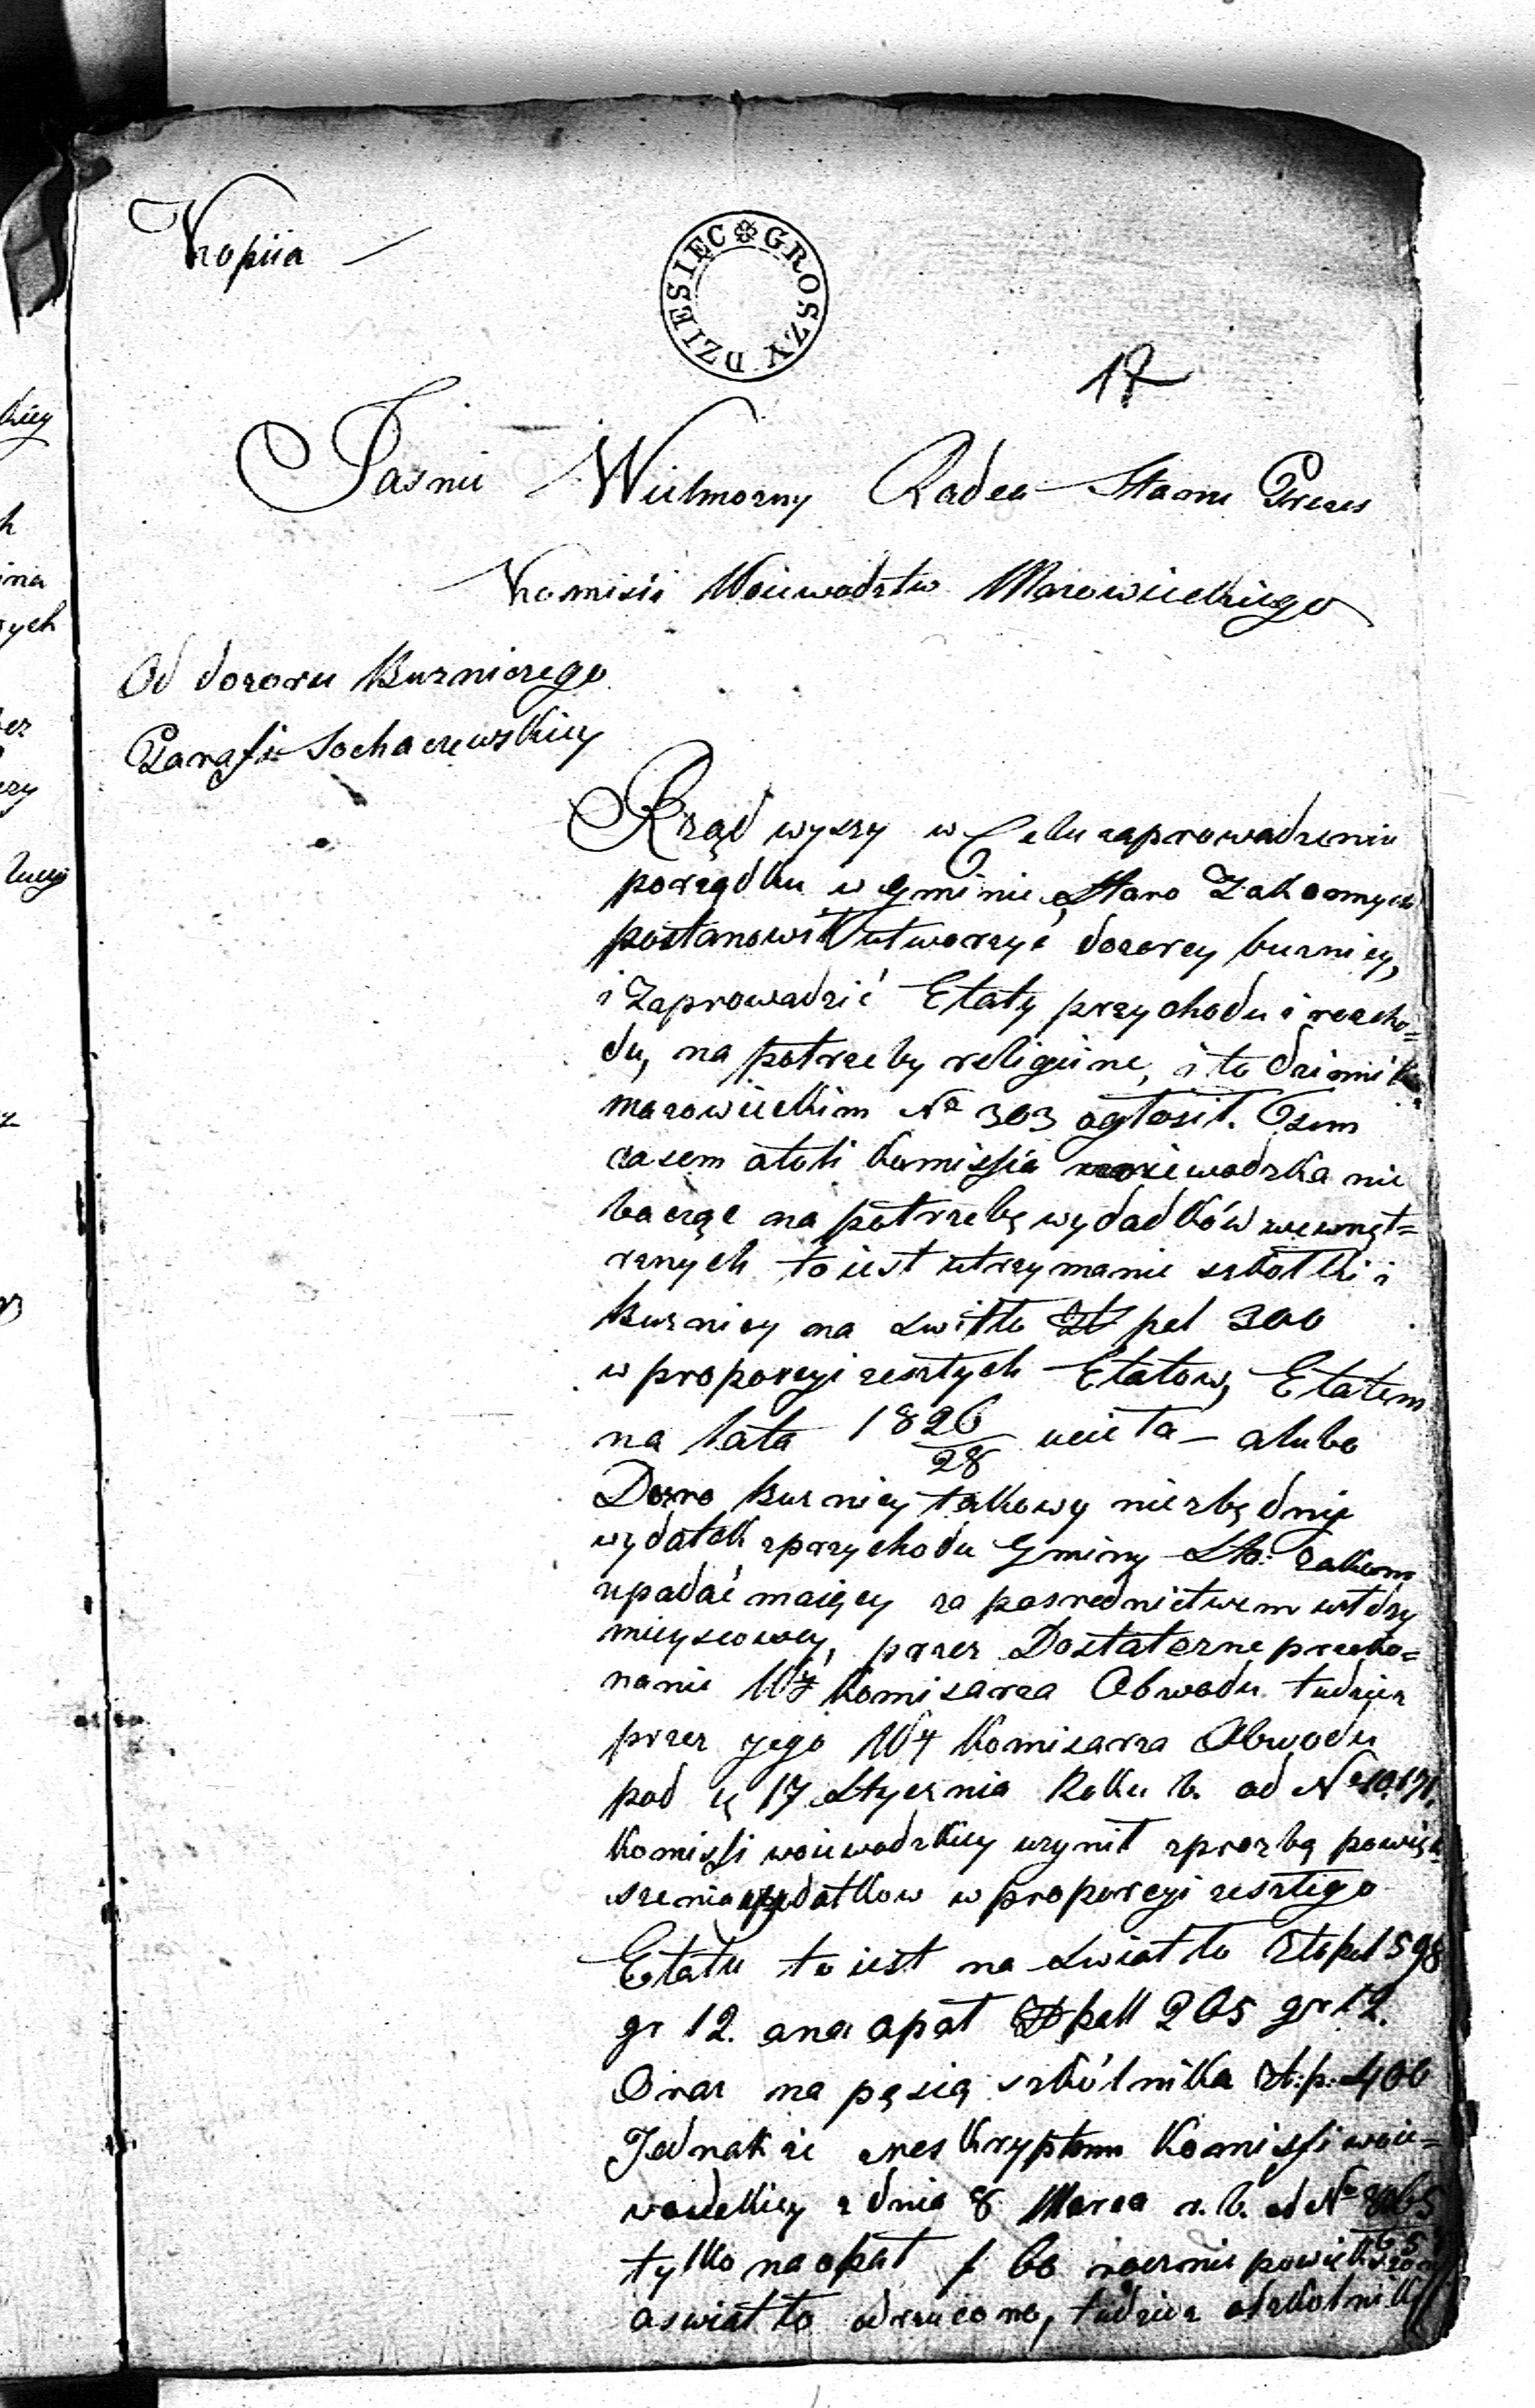 Kopiia
DZIESIĘC GROSZY
17
Jasnie Wielmozny Radca Stanu Prezes
Komisii Woiewodztw Mazowieckiego
Od dozoru Buzniczego
Parafii Sochaczewskiey
Rząd wyszy w Celu zaprowadzenia
porządku w gminie Staro Zakonnych
postanowił utworzyć dozorcy buzniczy,
i Zaprowadzić Etaty przychodu i rozcho=
du, na potrzeby religiine, i to dzienniku
mazowieckim No 303 ogłosił. Czem
casem atoli komissia woiewodzka nie
bacząc na potrzebę wydadków wewnęt=
rznych to iest utrzymanie szkołki i
Buznicy na swiłto Zł pol 300
w proporcyi resztych Etatow, Etatem
na lata 1826/28 ucieta – alubo
Dozro buznicy takowy niezbędny
wydatek zprzychodu Gminy Sta: Zakonn
upadać maięcy za posrednictwem włdzy
mieyscowey, przez Dostateczne przeko=
nanie W§ Komisarza Obwodu tudziez
przez jego W§ Komisarza Obwodu
pod ę 17 Stycznia Roku b. ad No 10171,
Komissi woiewodzkiey uzynił zprozbą powięk
szenia wydatkow w proporcyi resztigo
Etatu to iest na swiatło Złopol 598
gr 12. ana opał Zł poll 265 gr 12.
Oraz na pęsią szkólnika Zł: p: 400
Jednak ze reskryptem Komissi woie=
wodzkiey z dnia 8 Marca r. b. ad No
tylko na opał f 60 rocznie powiekszony
aswiatło odrzucono, tudziez olzkolnika